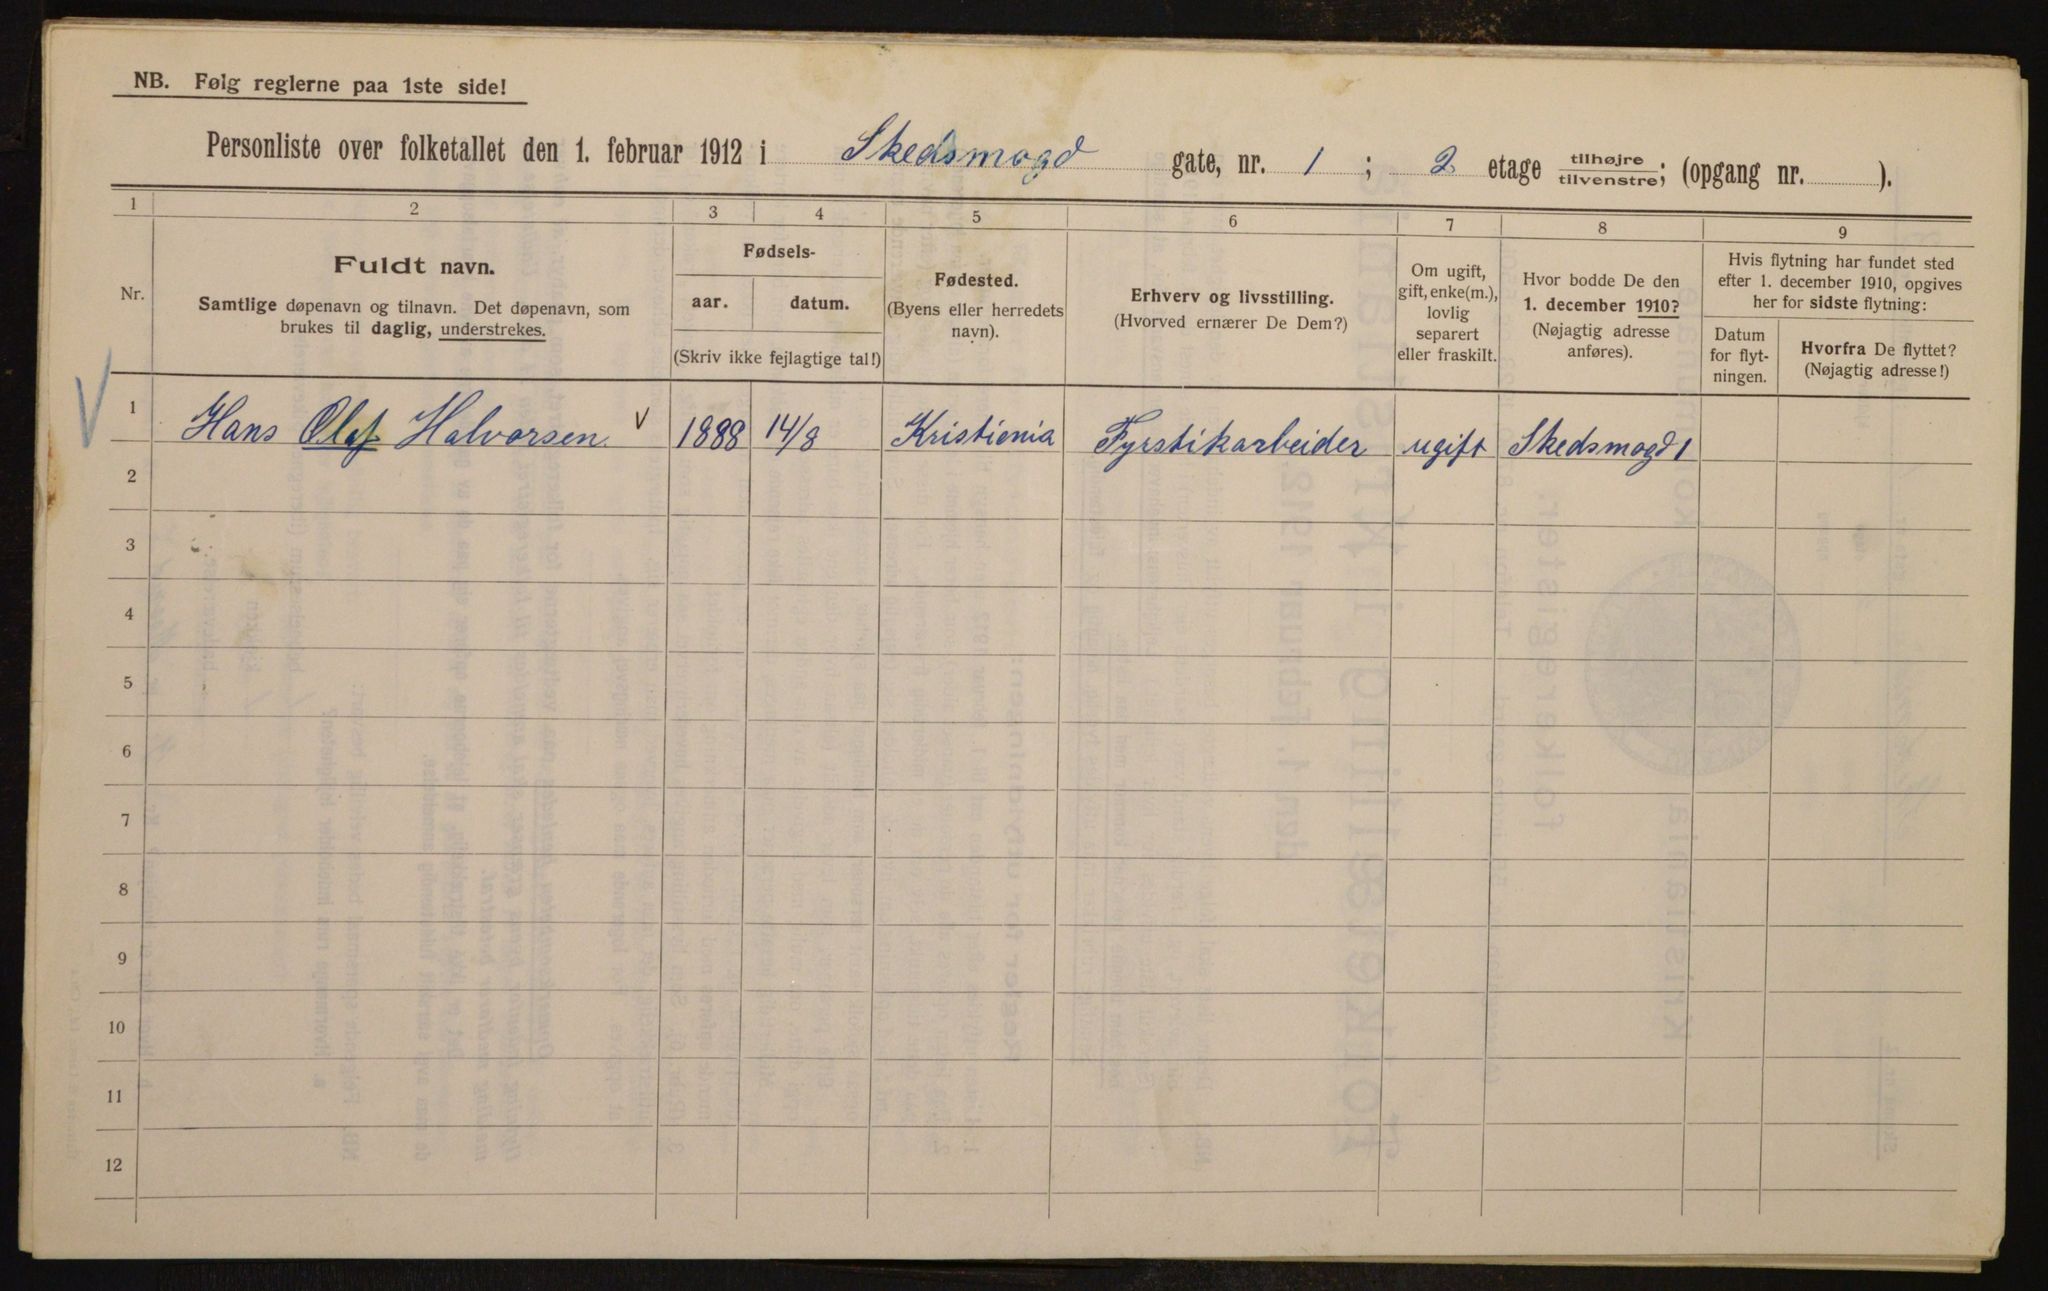 NB. Følg reglerne paa 1ste side!
Personliste over folketallet den 1. februar 1912 i Skedsmogd gate, nr. 1 ; 2. etage tilhøjre/tilvenstre; (opgang nr. ).
1 2 3 4 5 6 7 8 9
Nr.
Fuldt navn.
Samtlige døpenavn og tilnavn. Det døpenavn, som
brukes til daglig, understrekes.
Fødsels-
aar. datum.
(Skriv ikke fejlagtige tal!)
Fødested.
(Byens eller herredets
navn).
Erhverv og livsstilling.
(Hvorved ernærer De Dem?)
Om ugift,
gift, enke(m.),
lovlig
separert
eller fraskilt.
Hvor bodde De den
1. december 1910?
(Nøjagtig adresse
anføres).
Hvis flytning har fundet sted
efter 1. december 1910, opgives
her for sidste flytning:
Datum
for flyt-
ningen.
Hvorfra De flyttet?
(Nøjagtig adresse!)
V 1 Hans Olaf Halvorsen. V 1888 14/8 Kristienia Fyrstikarbeider ugift Skedsmogd 1
2
3
4
5
6
7
8
9
10
11
12